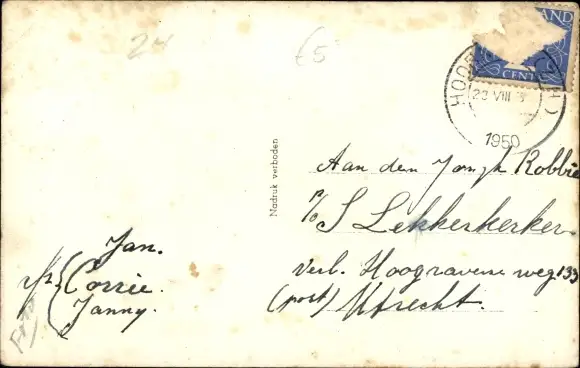 24
£5
LAND
CENT
HOO
23 VIII
1950
Nadruk verboden
Aan den Jongh Robbie
p/o S Lekkerkerker.
Verl. Hoogravense weg 133
(post) Utrecht.
Jan.
Corrie.
Janny.